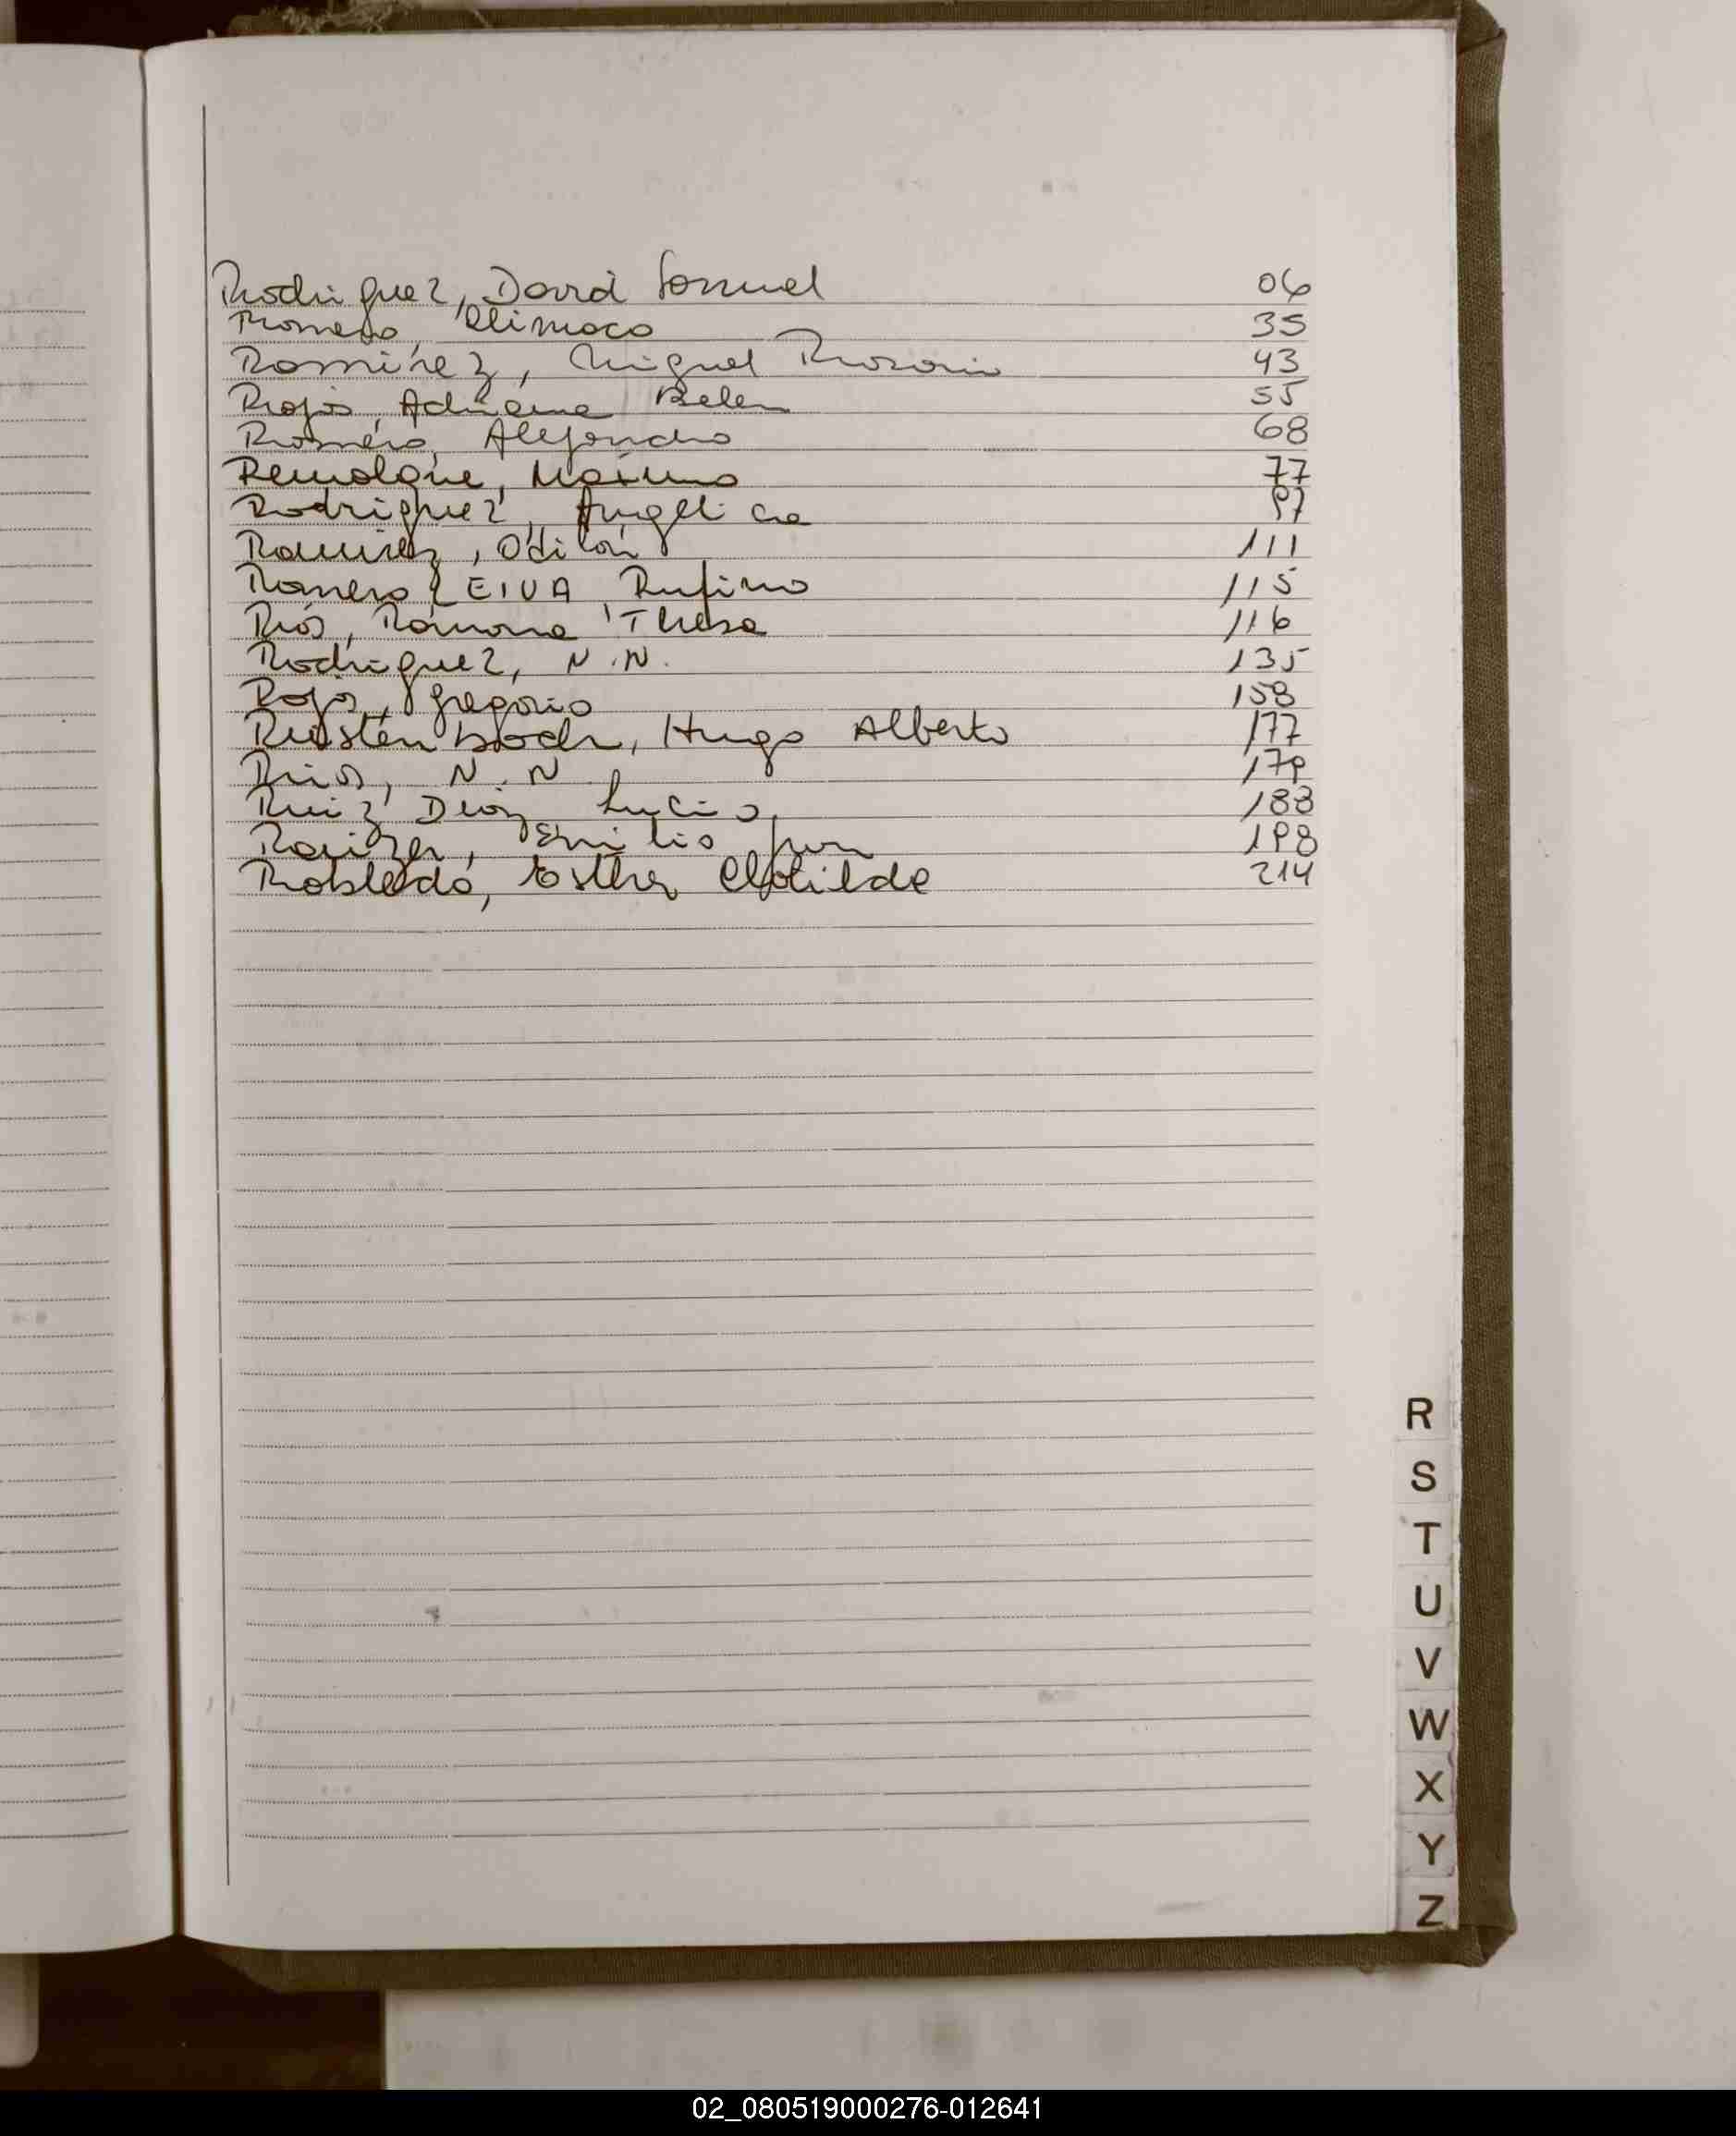 Rodriguez, David Samuel 06
Romero, Climaco 35
Ramirez, Miguel Rosario 43
Rojas, Adriana Belen 55
Romero, Alejandro 68
Remolgue, Maximo 77
Rodriguez, Angelica 97
Ramirez, Odilon 111
Romero LEIVA, Rufino 115
Rios, Ramona Theresa 116
Rodriguez, N.N. 135
Rojas, Gregorio 158
Hugo Alberto 177
Rios, N.N 179
Ruiz Diaz Lucio, 188
Emilio Juan 198
Robledo, Esther Clotilde 214
R
S
T
U
V
W
X
Y
Z
02_080519000276-012641